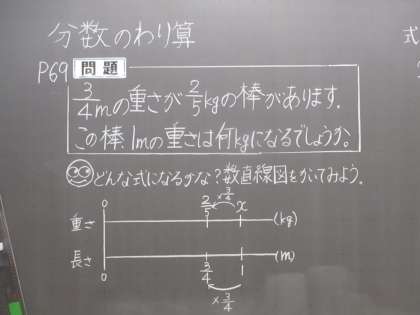 分数のわり算
式
P69 問題
3/4mの重さが2/5kgの棒があります.
この棒,1mの重さは何kgになるでしょうか。
どんな式になるかな?数直線図をかいてみよう.
×3/4
0 2/5 x
重さ (kg)
長さ (m)
0 3/4 1
×3/4